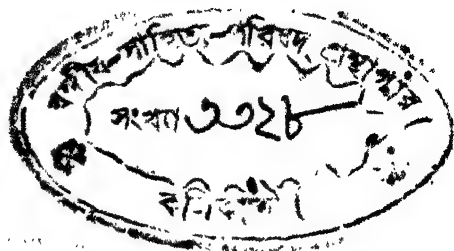 বঙ্গীয়-সাহিত্য-পরিষদ্ গ্রন্থাগার
সংখ্যা ৩৩২৮
কলিকাতা